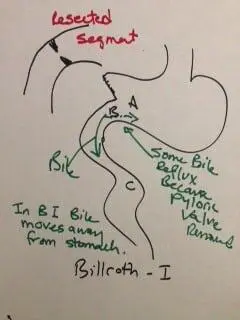 Resected
segment
A
B.
Bile
C
Some Bile
Reflux
Because
Pyloric
Valve
Removed
In B I Bile
moves away
from stomach.
Billroth - I